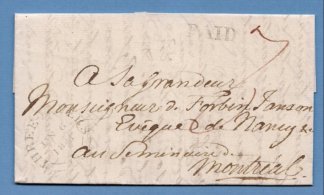 PAID
A Sa Grandeur
Monseigneur de Forbin Janson
Evêque de Nancy &
au Seminaire
Montréal